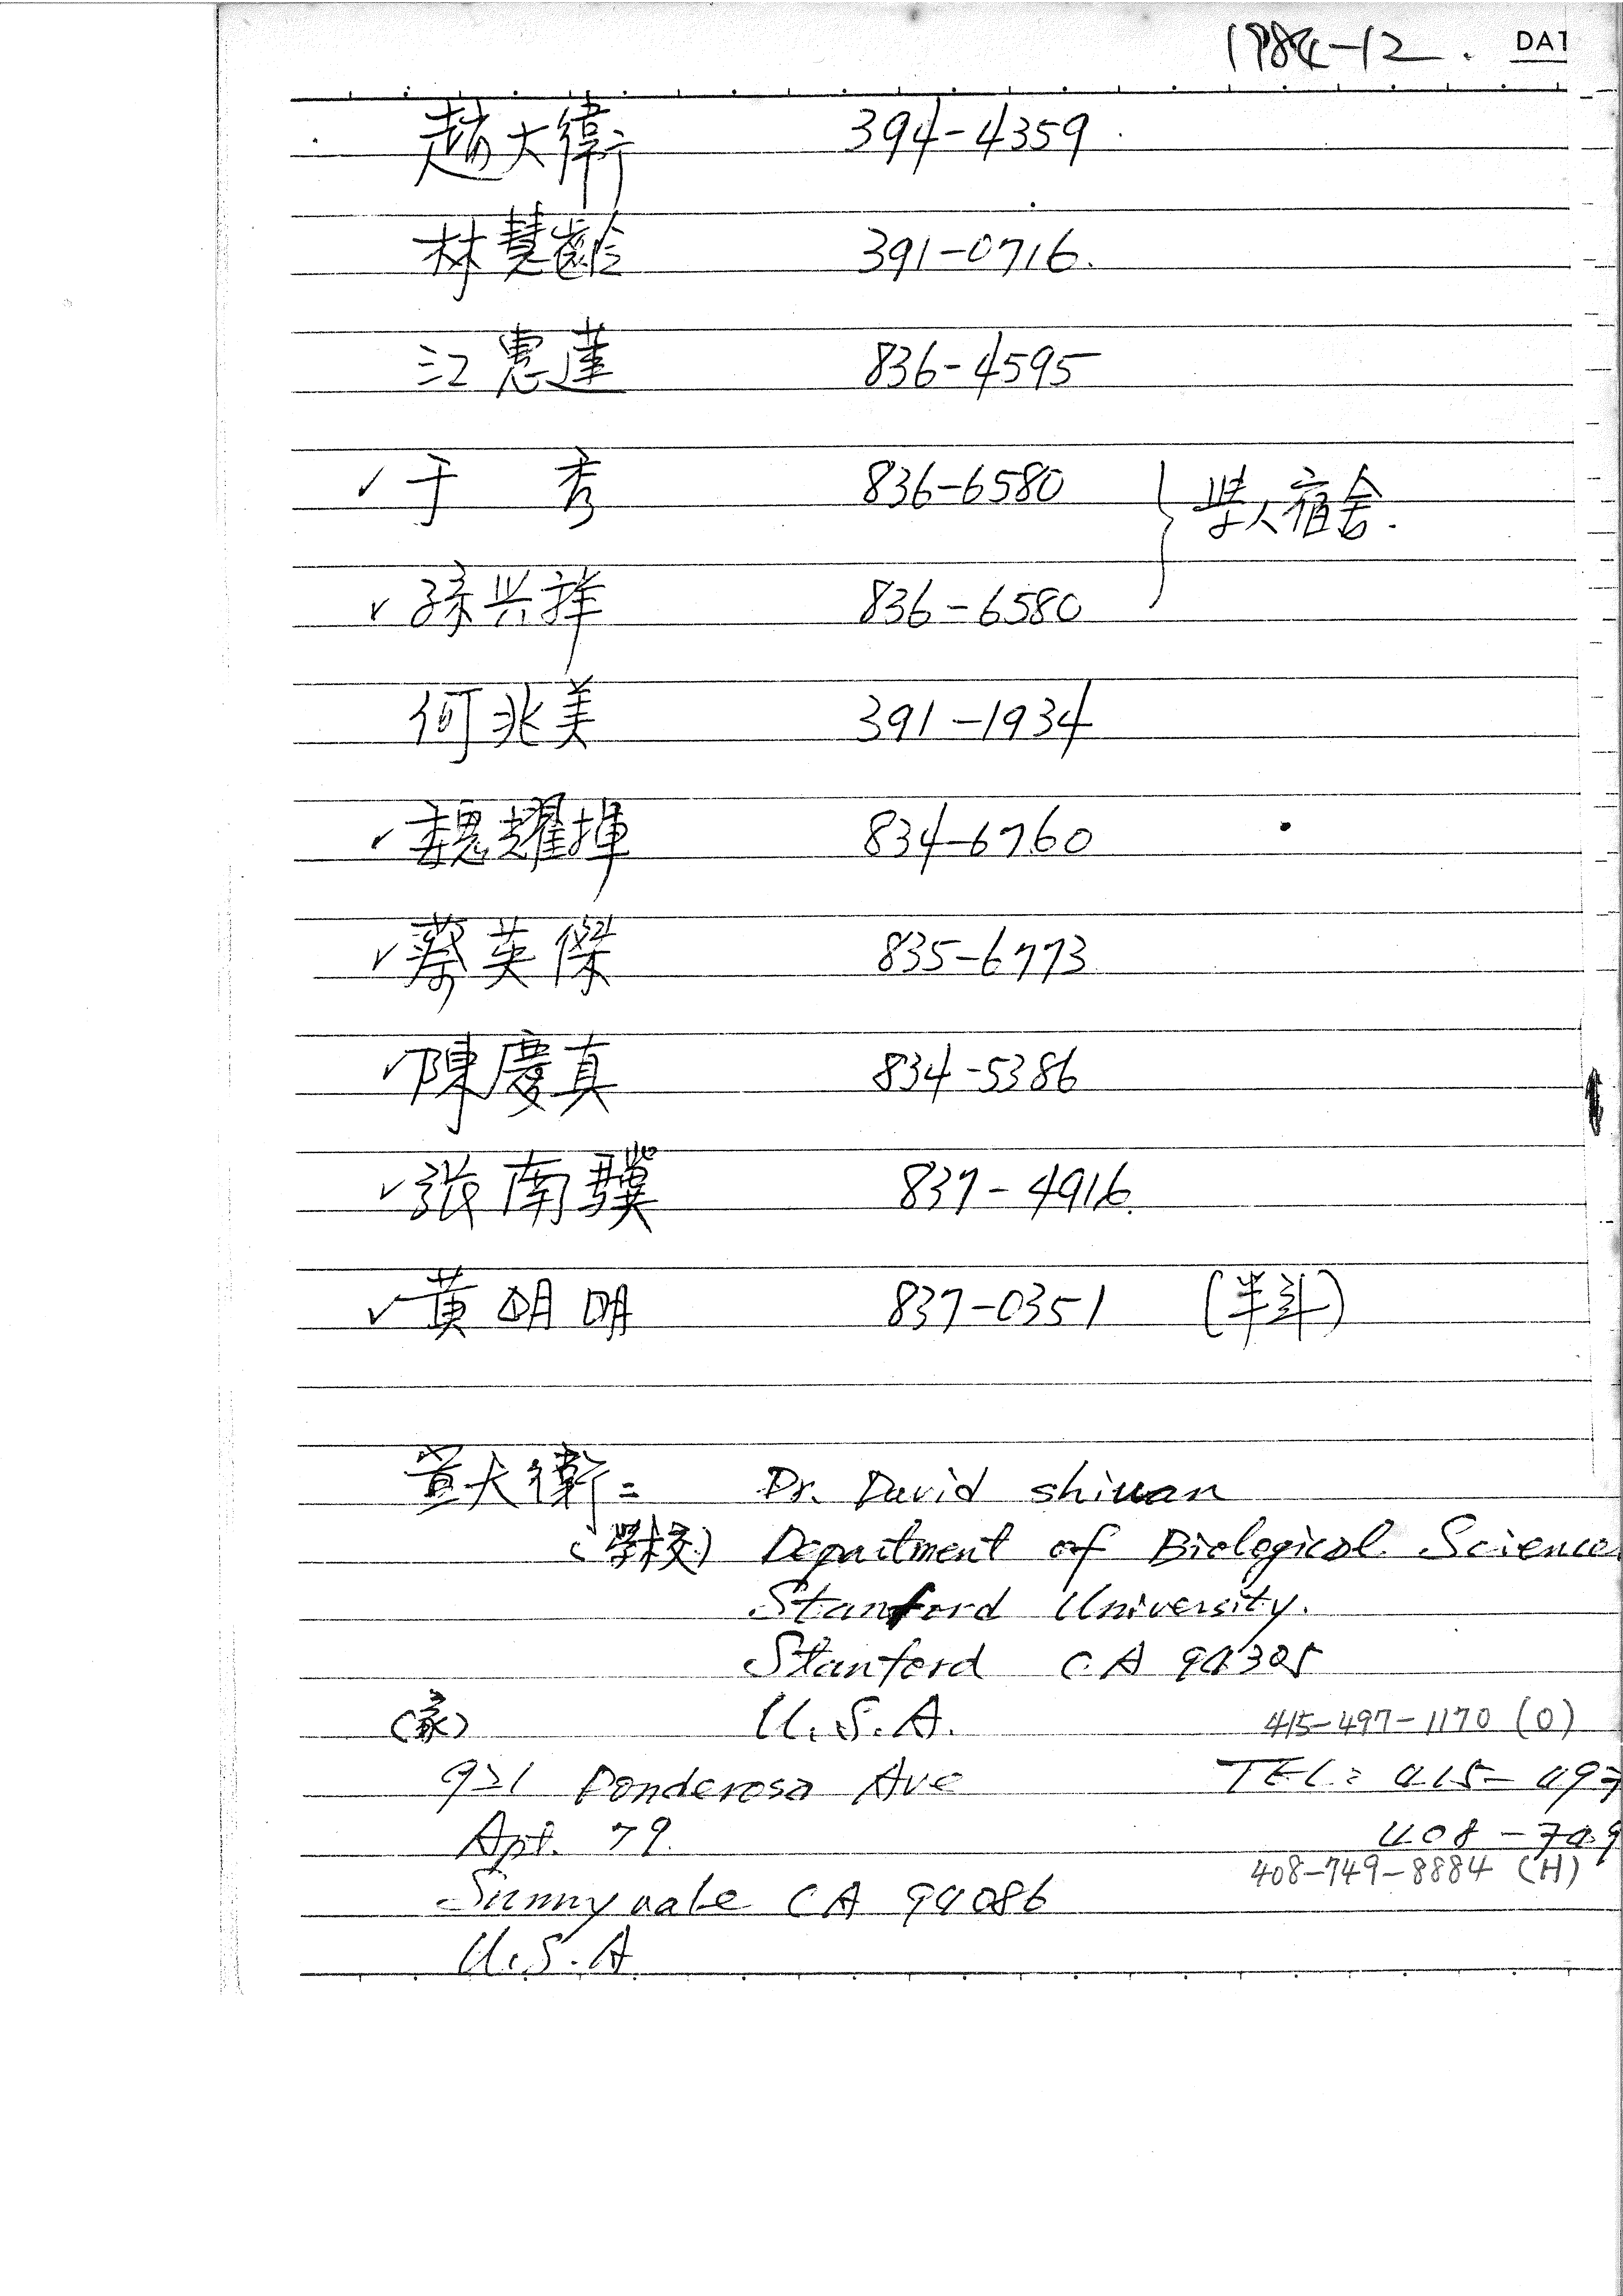 1984-12. DAT
趙大衛 394-4359
林慧齡 391-0716.
江惠蓮 836-4595
✓于 秀 836-6580 } 学人宿舍.
✓孫兴祥 836-6580
何兆美 391-1934
✓魏耀揮 834-6760
✓蔡英傑 835-6773
✓陳慶真 834-5386
✓張南驥 837-4916.
✓黄明明 837-0351 (半斗)
黄大衛= Dr. David shiuan
(學校) Department of Biological Science
Stanford University.
Stanford CA 94305
(家) U.S.A. 415-497-1170 (O)
921 Ponderosa Ave TEL: 415-497
Apt. 79. 408-749
408-749-8884 (H)
Sunnyvale CA 94086
U.S.A